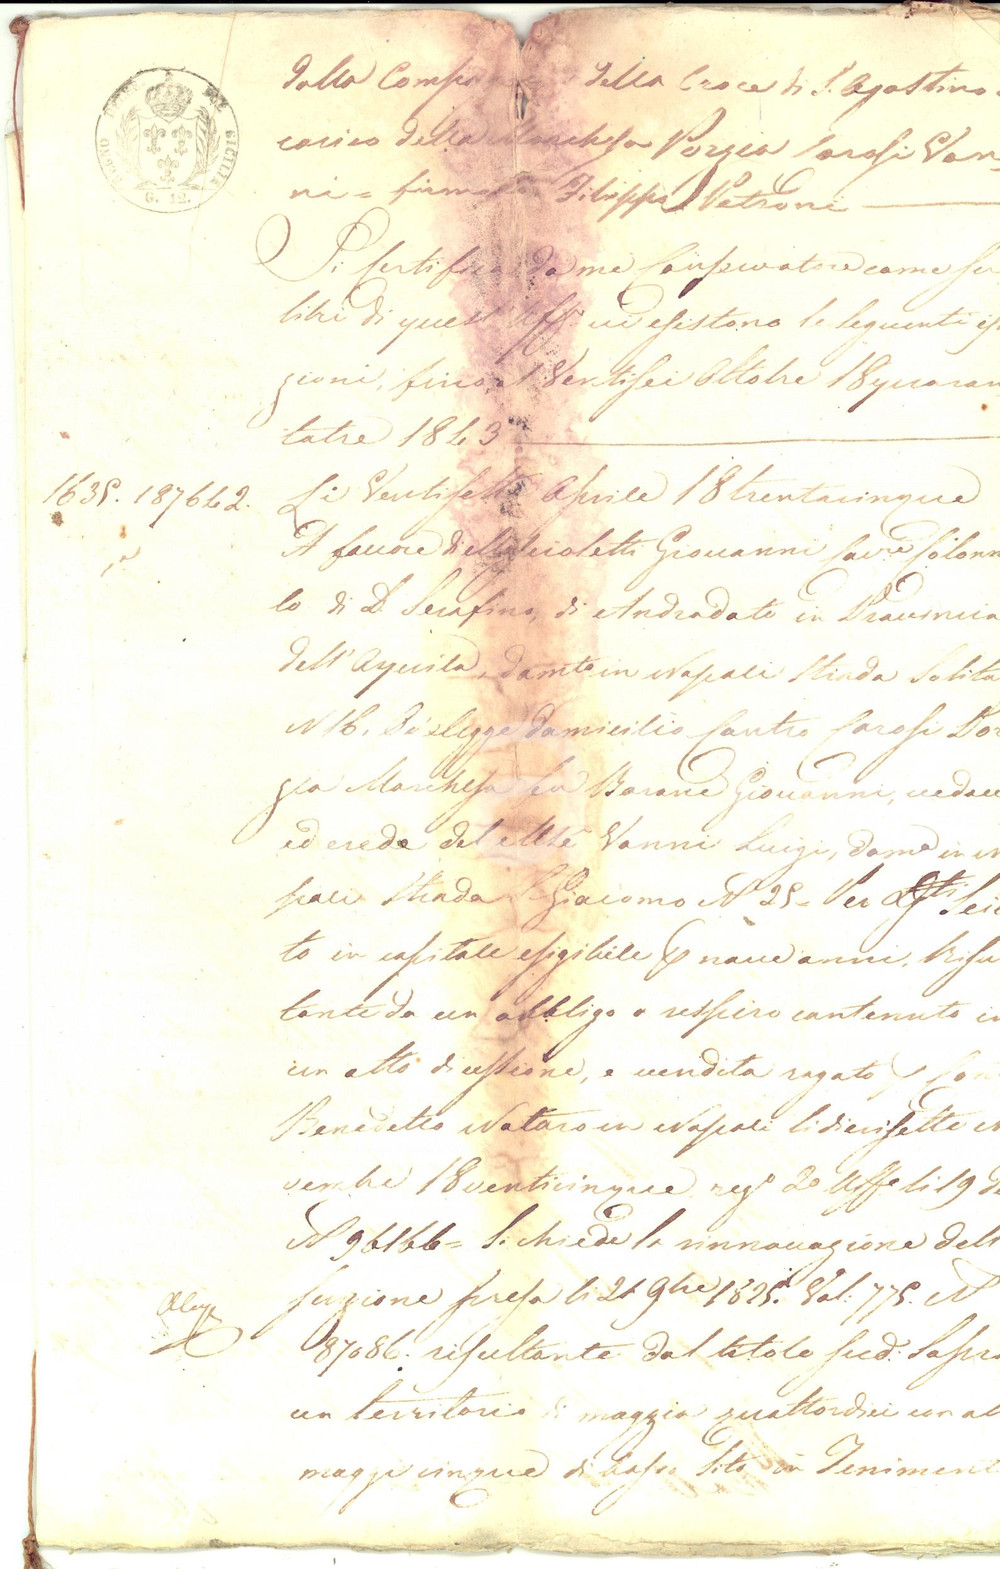 dalla Comp della Croce di S. Agostino
carico della Marchesa Porzia Carosi Van=
ni = firmato Filippo Petroni
Si certifica da me Conservatore come
libri di quest' Uff.° vi esistono le seguenti
zioni, fino a Ventisei Ottobre 18quaran
tatre 1843
REGNO DELLE DUE SICILIE
G. 12.
1635. 187642. Li Ventisette Aprile 18trentacinque
A favore di Nicoletti Giovanni Cav.re Colonn
lo di D. Serafino, di Androdoto in Provincia
dell' Aquila, dom.to in Napoli Strada Solita
N 16. di elegge domicilio Contro Carosi Por
zia Marchesa fu Barone Giovanni, vedov
ed erede del M.se Vanni Luigi, dom.a in
poli Strada S. Giacomo N° 25 = Per D.ti Seic
to in capitale esigibile p nove anni. Risu
tante da un obbligo a respiro contenuto in
un atto di cessione, e vendita rogato p
Benedetto Notaro in Napoli li diecisette
vembre 18venticinque reg.° 2° Uff.° li 19
N 96166 = Si chiede la rinnovazione dell
scrizione presa li 21 9bre 1825. Vol: 775. N
87086. risultante dal titolo sud.° Sopra
un territorio di moggia quattordici un al
moggi cinque di Sito in Teniment